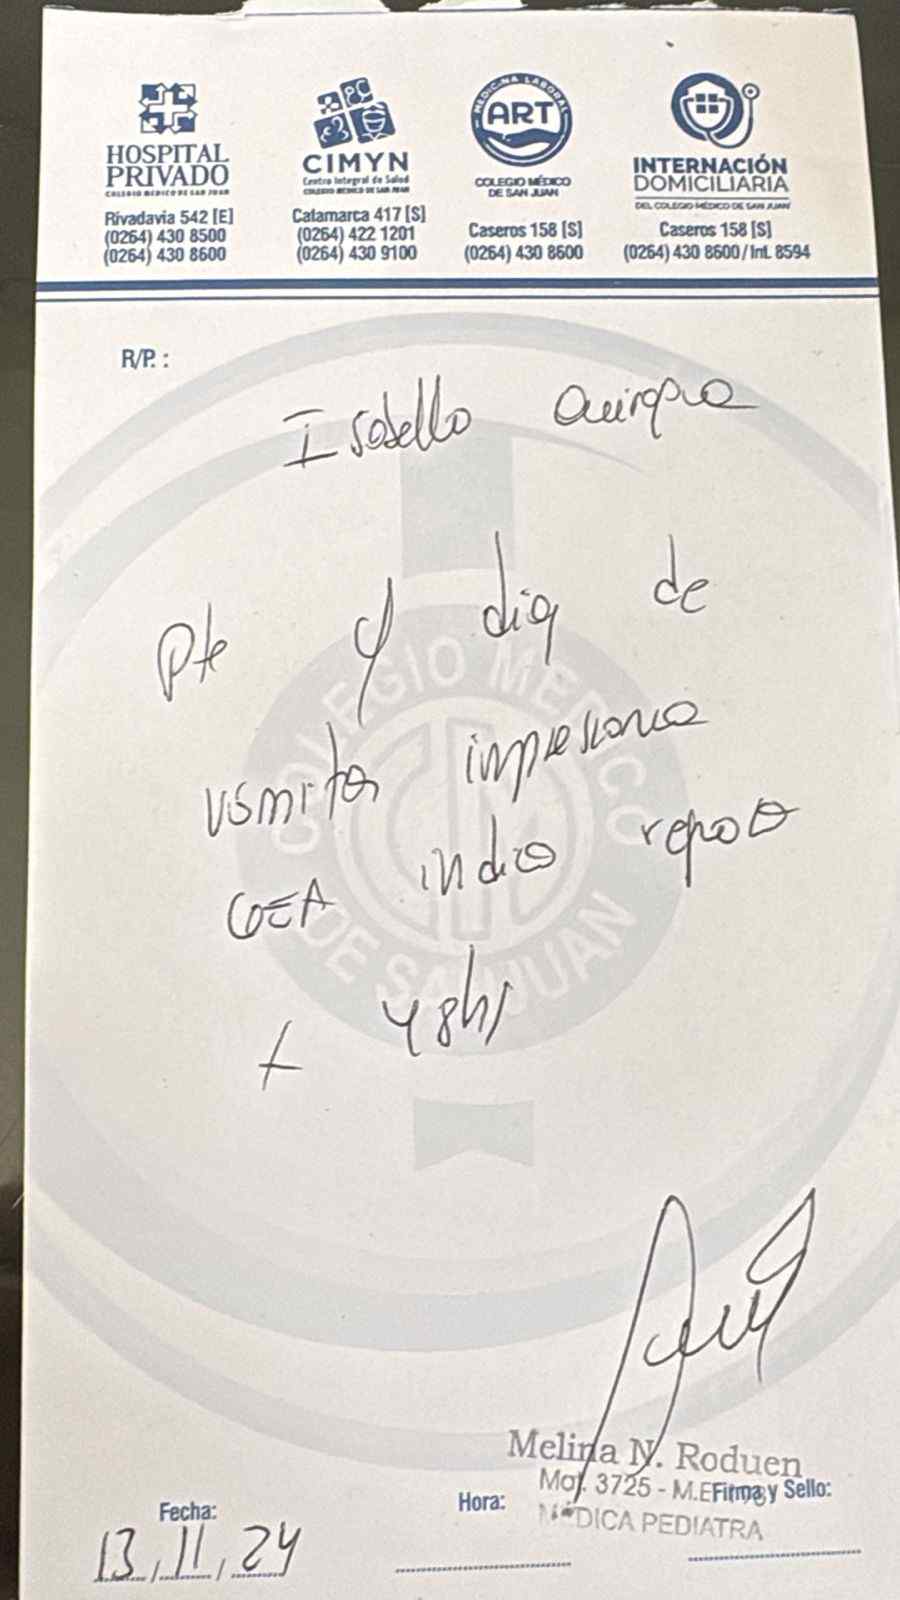 HOSPITAL PRIVADO
COLEGIO MÉDICO DE SAN JUAN
Rivadavia 542 [E]
(0264) 430 8500
(0264) 430 8600
CIMYN
Centro Integral de Salud
COLEGIO MÉDICO DE SAN JUAN
Catamarca 417 [S]
(0264) 422 1201
(0264) 430 9100
MEDICINA LABORAL
ART
COLEGIO MÉDICO
DE SAN JUAN
Caseros 158 [S]
(0264) 430 8600
INTERNACIÓN
DOMICILIARIA
DEL COLEGIO MÉDICO DE SAN JUAN
Caseros 158 [S]
(0264) 430 8600/Int. 8594
R/P. :
Isabella
Pte dia de
vómitos impresiona
GEA indico reposo
x 48hs
COLEGIO MEDICO DE SAN JUAN
Melina N. Roduen
Mat. 3725 - M.E.
MÉDICA PEDIATRA
Firma y Sello:
Hora:
Fecha:
13, 11, 24